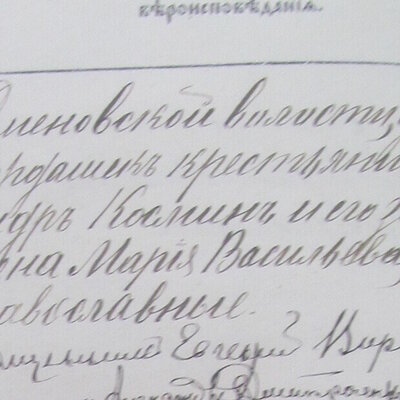 вѣроисповѣданія.
меновской волости,
рдашекъ крестьяни
ндръ Косминъ и его ж
на Марія Васильева
авославные.
Евгеній Кир